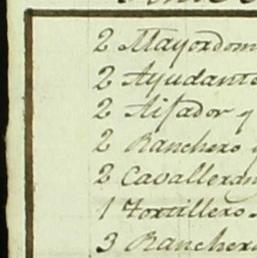 2 Mayordom
2 Ayudante
2 Aisador y
2 Ranchero y
2 Cavalleran
1 Tortillero
3 Ranchero